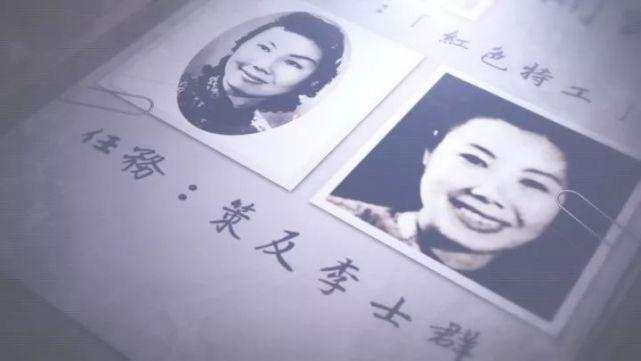 ：「紅色特工」
任務：策反李士群